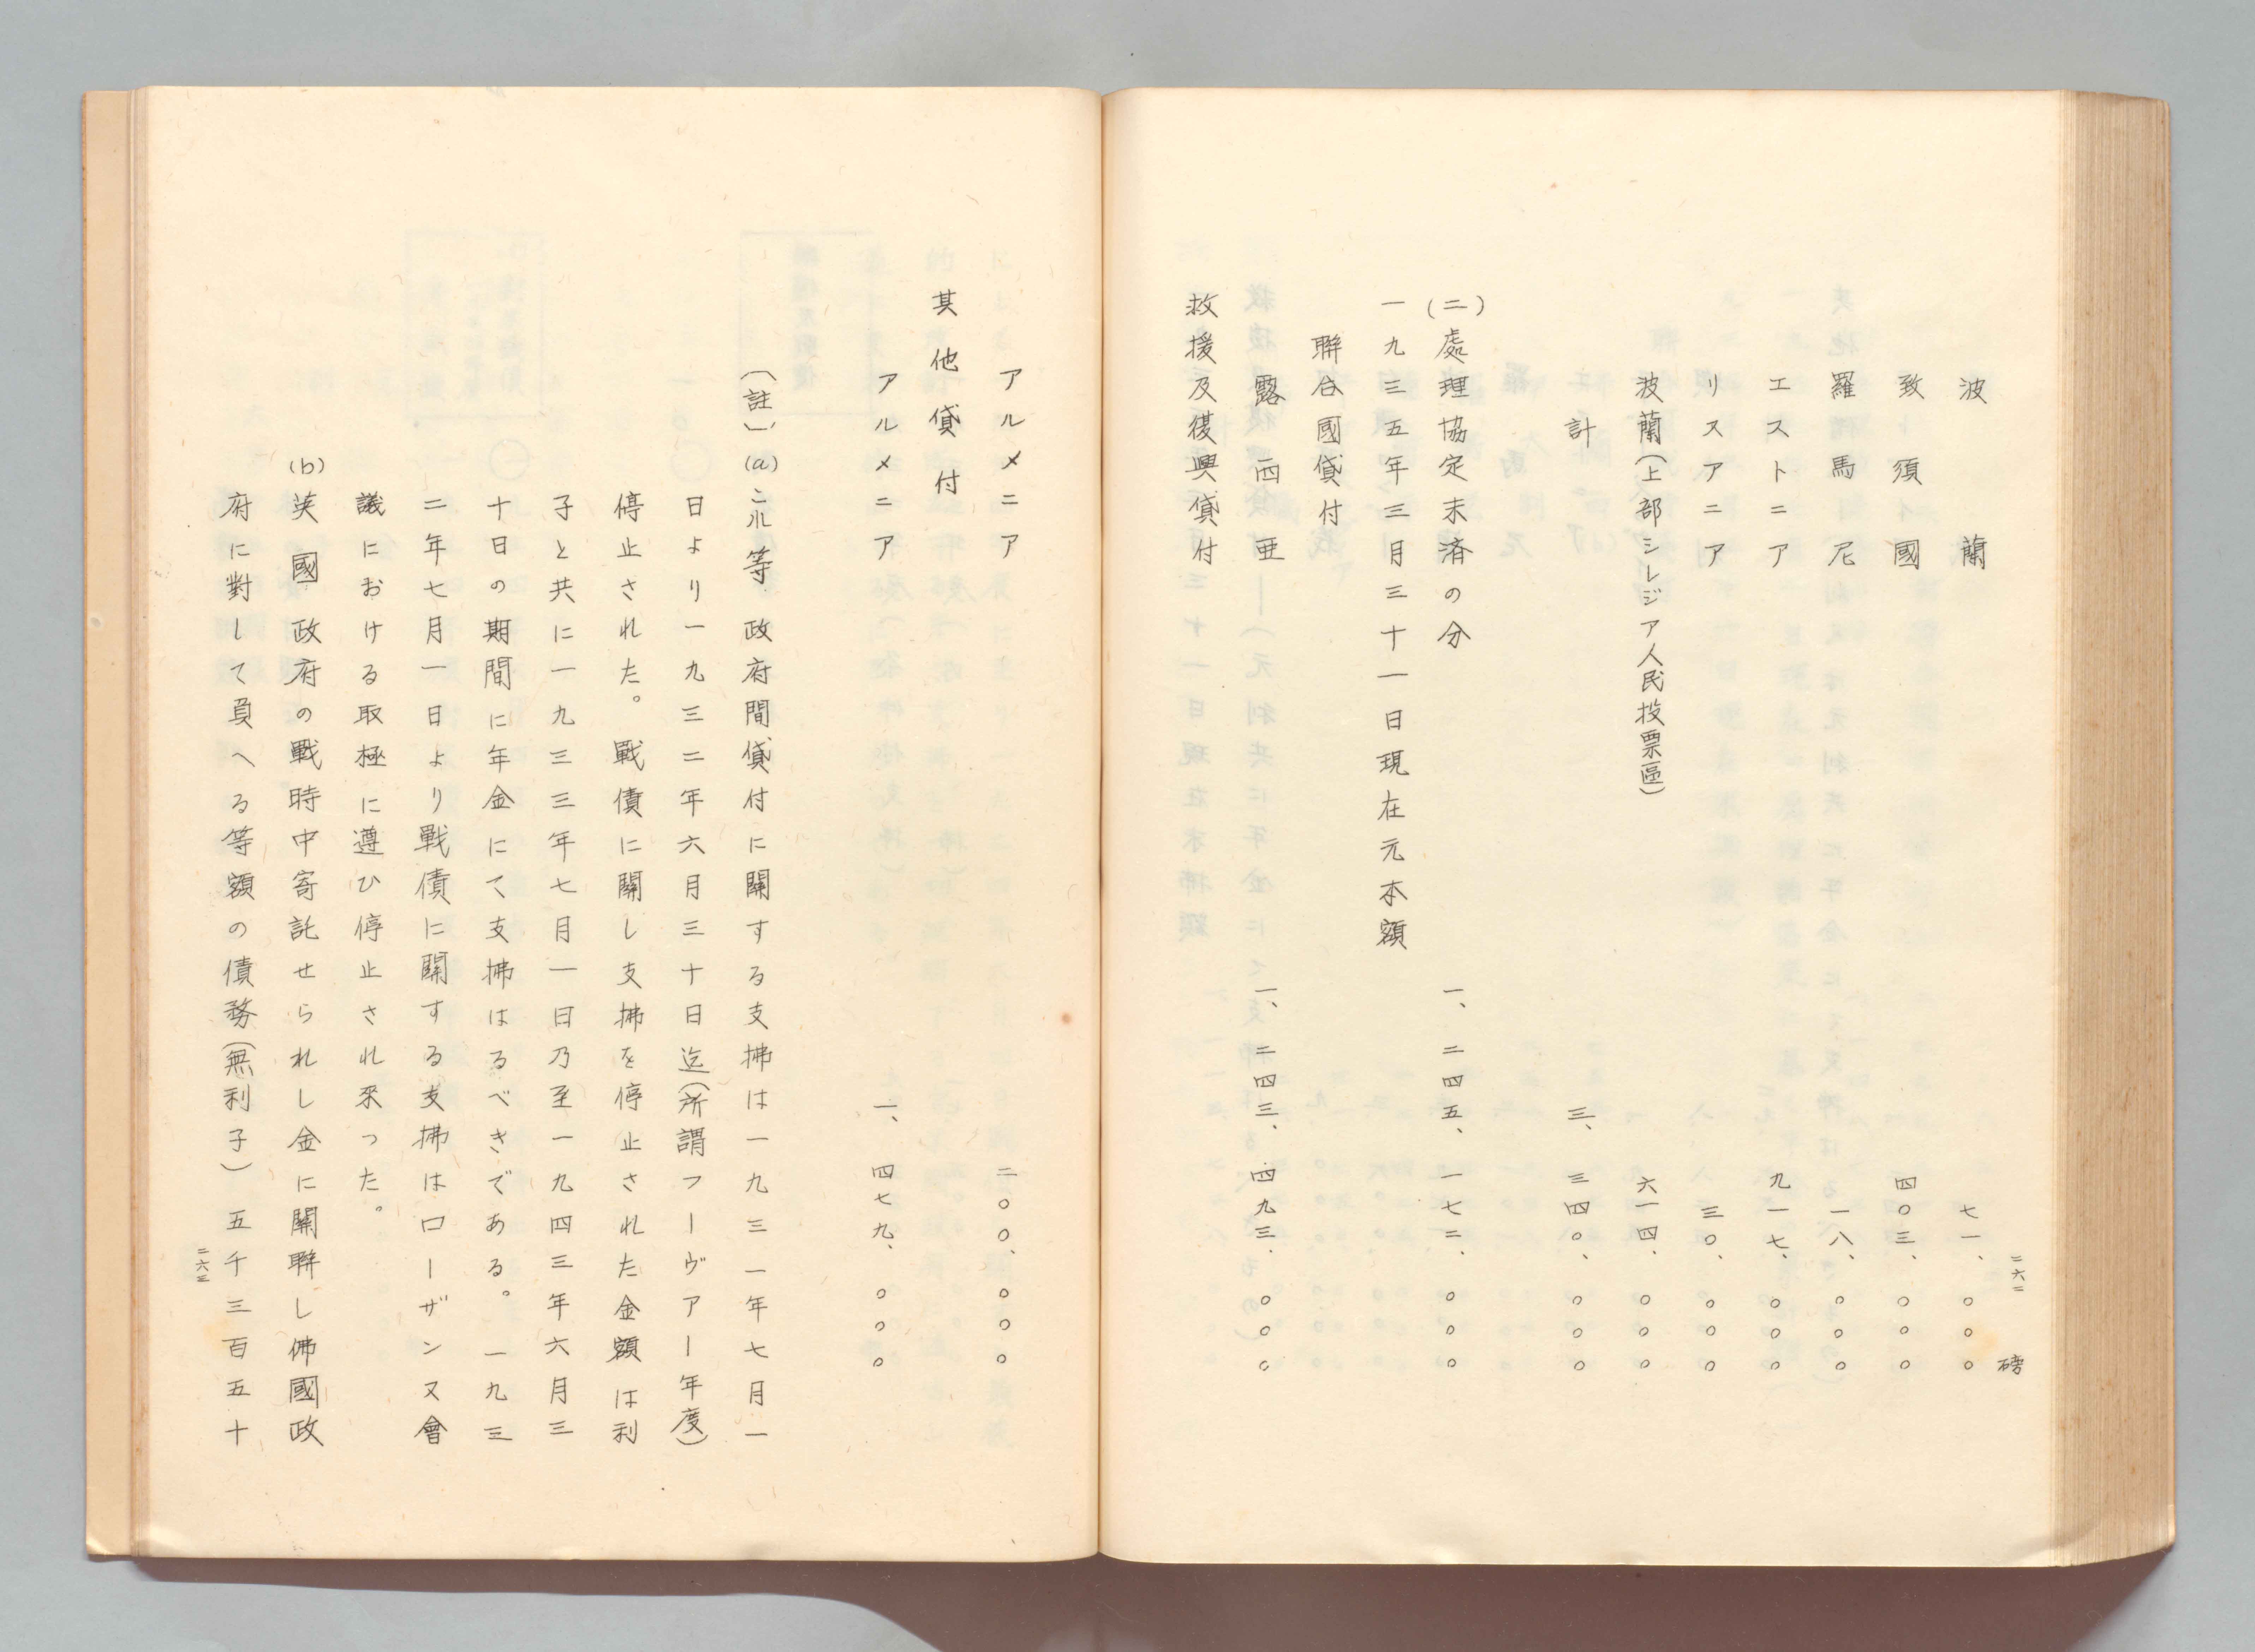 二六二
磅
波蘭 七一、〇〇〇
致須國 四〇三、〇〇〇
羅馬尼 一八、〇〇〇
エストニア 九一七、〇〇〇
リスアニア 三〇、〇〇〇
波蘭(上部シレジア人民投票區) 六一四、〇〇〇
計 三、三四〇、〇〇〇
(二)處理協定未済の分 一、二四五、一七二、〇〇〇
一九三五年三月三十一日現在元本額
聯合國貸付
露西亜 一、二四三、四九三、〇〇〇
救援及復興貸付
アルメニア 二〇〇、〇〇〇
其他貸付
アルメニア 一、四七九、〇〇〇
(註一)(a)これ等政府間貸付に關する支拂は一九三一年七月一
日より一九三二年六月三十日迄(所謂フーヴアー年度)
停止された。戰債に關し支拂を停止された金額は利
子と共に一九三三年七月一日乃至一九四三年六月三
十日の期間に年金にて支拂はるべきである。一九三
二年七月一日より戰債に關する支拂はローザンヌ會
議における取極に遵ひ停止され來つた。
(b)英國政府の戰時中寄託せられし金に關聯し佛國政
府に對して負へる等額の債務(無利子)五千三百五十
二六三